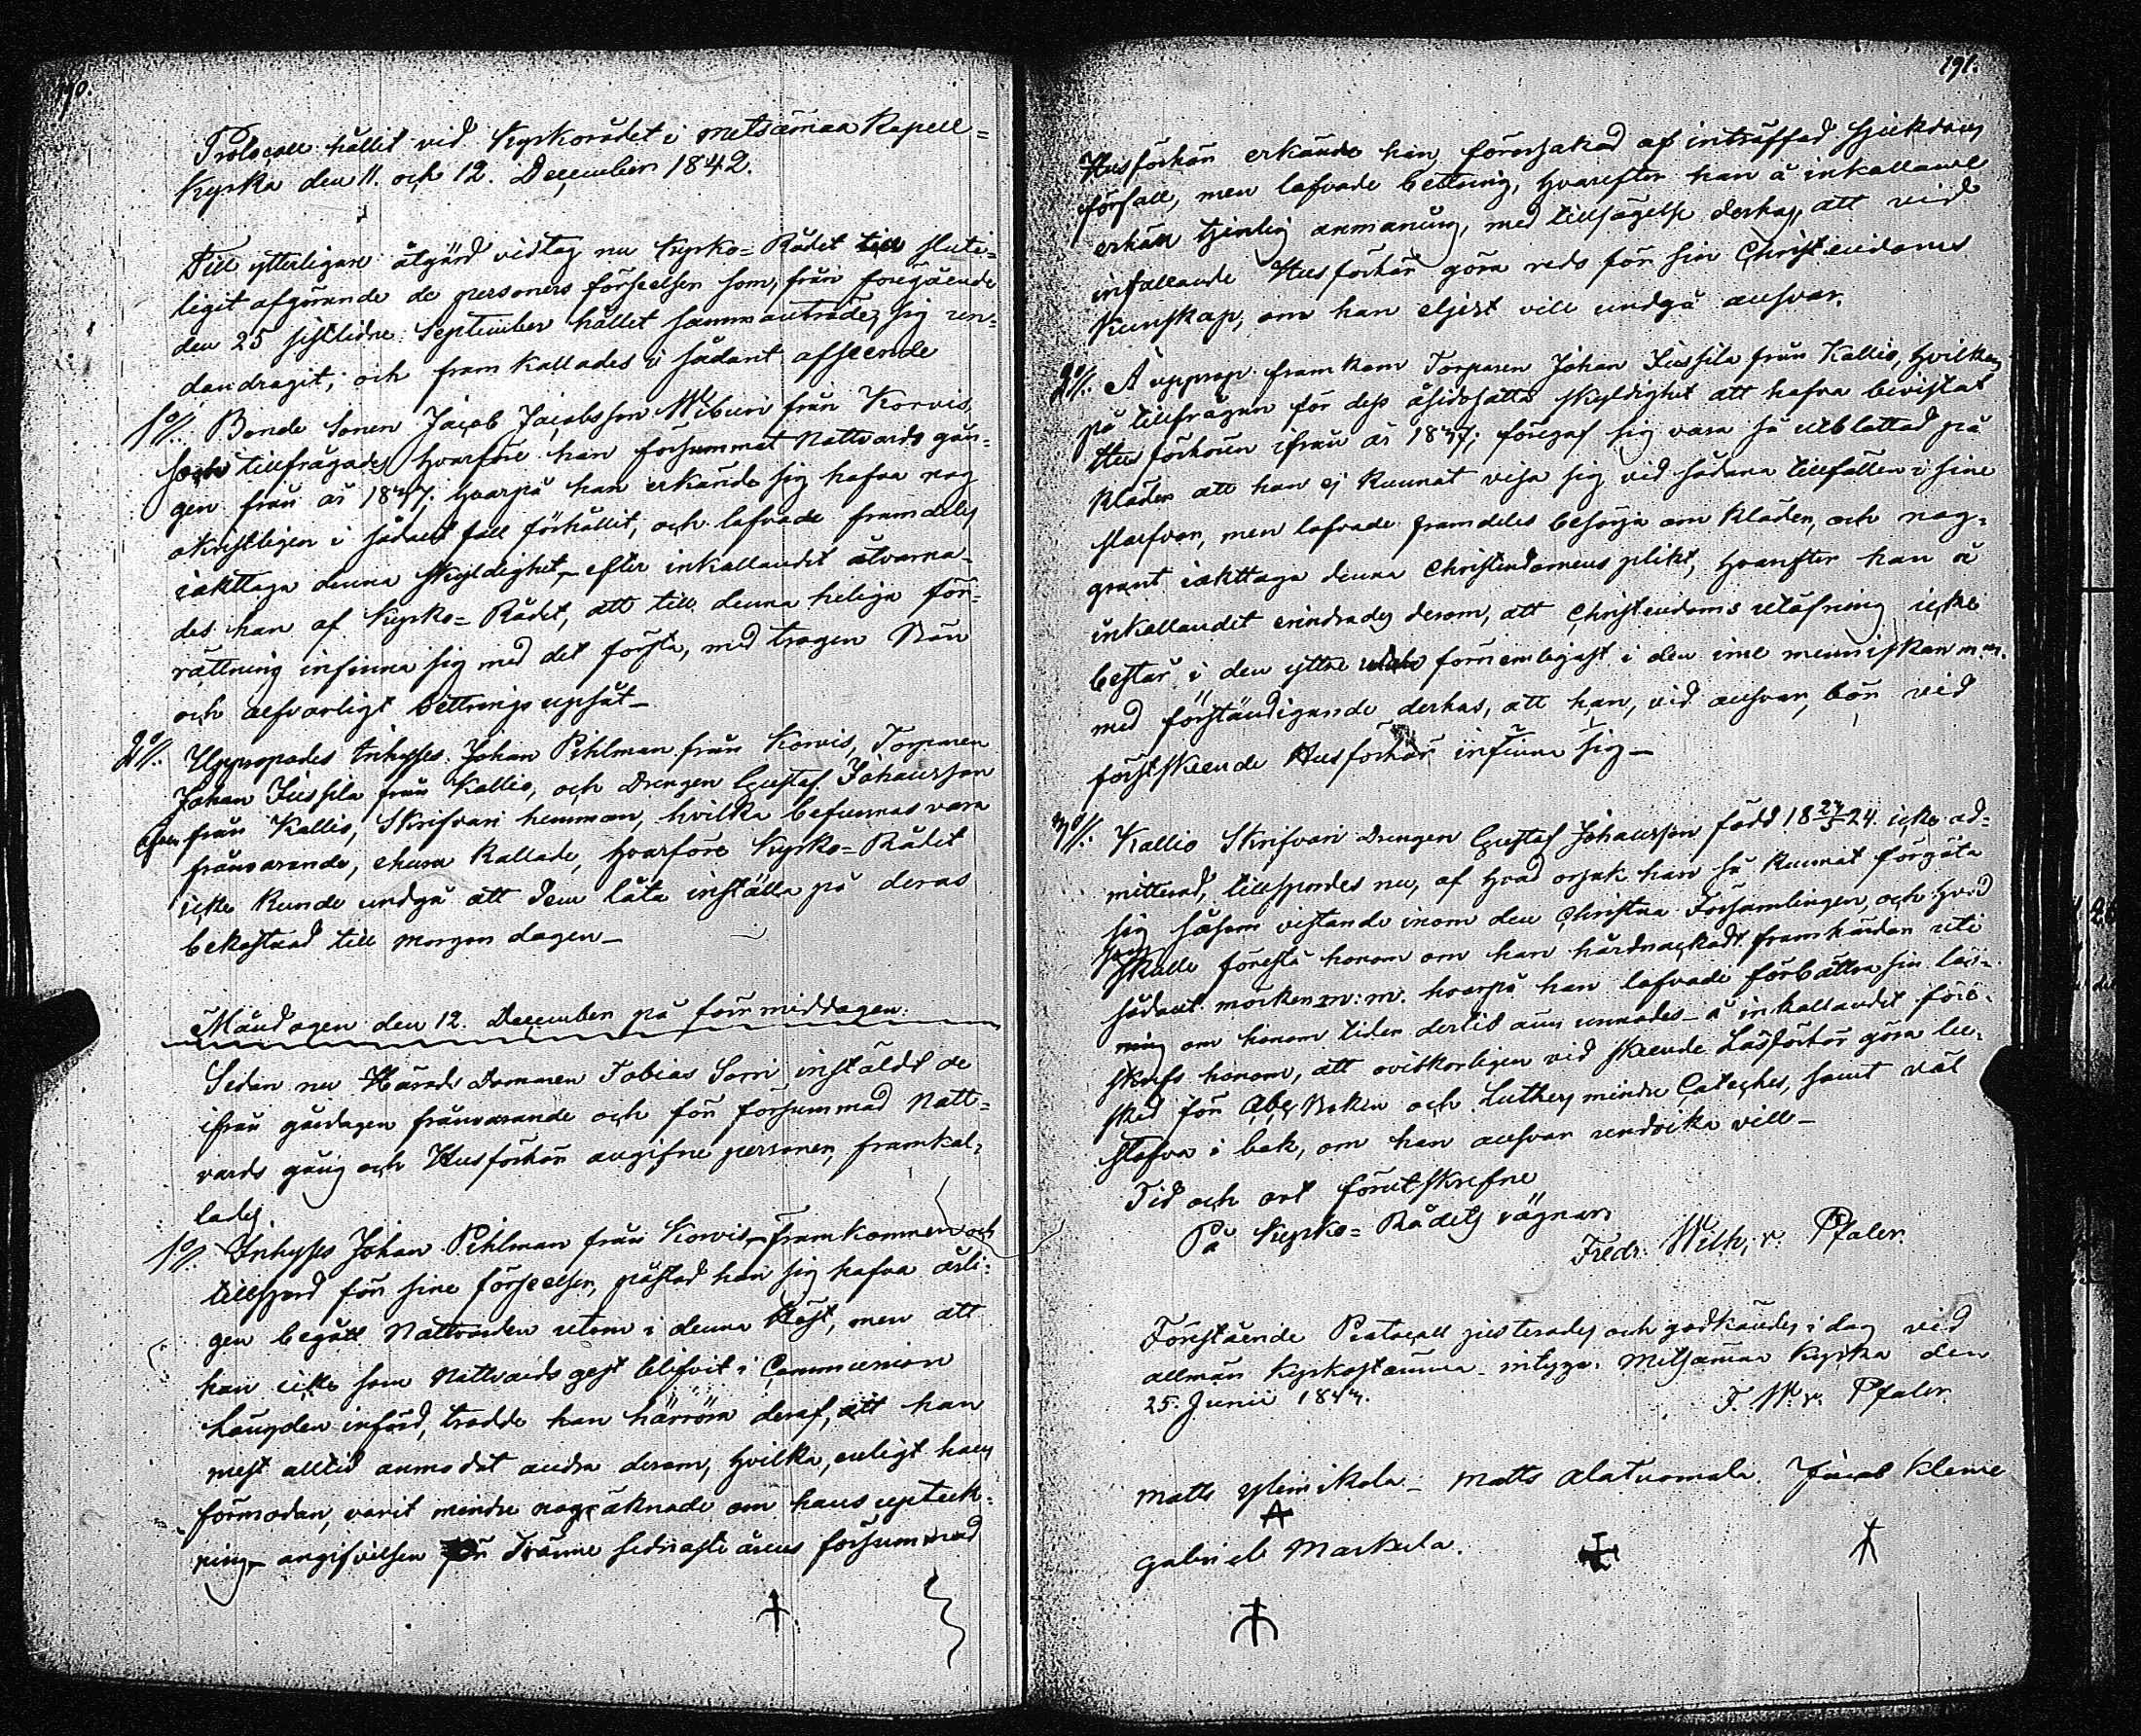 190.
Protocoll hållit vid Kyrkorådet i Metsämaa Kapell=
Kyrka den 11. och 12. December 1842.
Till ytterligare åtgärd vidtog nu Kyrko=Rådet till slut=
ligit afgörande de personers förseelser som, från föregående
den 25 sistlidne September hållet sammanträde, sig un=
dandragit; och framkallades i sådant afseende
1o//. Bonde Sonen Jacob Jacobsson Wiburi från Korvis,
som tillfrågades hvarföre han försummat Nattvards gån=
gen från år 1837; hvarpå han erkände sig hafva nog
okristligen i sådant fall förhållit, och lofvade framdeles
iakttaga denna skyldighet, efter inkallandet åtvarna=
des han af Kyrko=Rådet, att till denna heliga för=
rättning infinna sig med det första, med trogen Bön
och alfvarligt bettrings upsåt_
2o//. Uppropades Inhyses Johan Pihlman från Korvis, Torparen
Johan Jussila från Kallio, och Drengen Gustaf Johansson
från Kallio, Skrifvari hemman, hvilka befunnos vara
frånvarande, ehuru kallade, hvarföre Kyrko=Rådet
icke kunde undgå att dem låta inställa på deras
bekostnad till morgon dagen_
Måndagen den 12. December på förmiddagen.
Sedan nu Härads Domaren Tobias Sorri instäldt de
ifrån gårdagen frånvarande och för försummad Natt=
vards gång och Husförhör angifne personer, framkal=
lades
1o//. Inhyses Johan Pihlman från Korvis, framkommen och
tillspord för sine förseelser, påstod han sig hafva årli=
gen begått Nattvarden utom i denna Höst, men att
han icke som Nattvards gest blifvit i Communion
Längden införd, trodde han härröra deraf, att han
mest alltid anmodat andra derom, hvilka, enligt hans
förmodan, varit mindre nogräknade om hans upteck=
ning_ angifvelsen för Tränne sednaste årens försummad
191.
Husförhör erkände han, förorsakad af inträffad sjukdoms
förfall, men lofvade bettring, hvarefter han å inkallande
erhöll tjenlig anmaning, med tillsägelse derhos, att vid
infallande Husförhör göra reds för sin Christendoms
Kunskap, om han eljest vill undgå ansvar.
2o//: Å upprop framkom Torparen Johan Jussila från Kallio, hvilken
på tillfrågan för dess åsidosatta skyldighet att hafva bevistat
Husförhören ifrån år 1837; föregaf sig vara så utblottad på
Kläder att han ej kunnat visa sig vid sådana tillfällen i sine
slarfvor, men lofvade framdeles besörja om kläder, och nog=
grant iakttaga denna Christendomens plikt, hvarefter han å
inkallandet erindrades derom, att Christendoms utöfning icke
består i den yttre utan förnemligast i den inre menniskan m.m.
med förständigande derhos, att han, vid ansvar, bör vid
förstskeende Husförhör infinna sig_
3o//: Kallio Skrifvari Drengen Gustaf Johansson född 18 27/3 24. icke ad=
mitterad, tillspordes nu, af hvad orsak han så kunnat förgäta
sig såsom vistande inom den Christna Församlingen, och hvad
skulle förestå honom om han hårdnackadt framhärdar uti
sådant mörker m:m. hvarpå han lofvade förbättra sin läs=
ning om honom tiden dertid ännu unnades_ å inkallandet före=
skrefs honom, att ovilkorligen vid skeende Läsförhör göra be=
sked för Abc Boken och Luthers mindre Cateches, samt väl
stafva i bok, om han ansvar undvika vill_
Tid och ort förutskrefne
På Kyrko=Rådets vägnar
Fredr. Wilh. v. Pfaler
Förestående Protocoll justerades och godkändes i dag vid
allmän Kyrkostämma_ intyga. Metsämaa Kyrka den
25. Junii 1843.
F. W. v. Pfaler
Matts Yliniskala_ Matts Alatuomala. Jacob Kleme
Gabriel Markula.